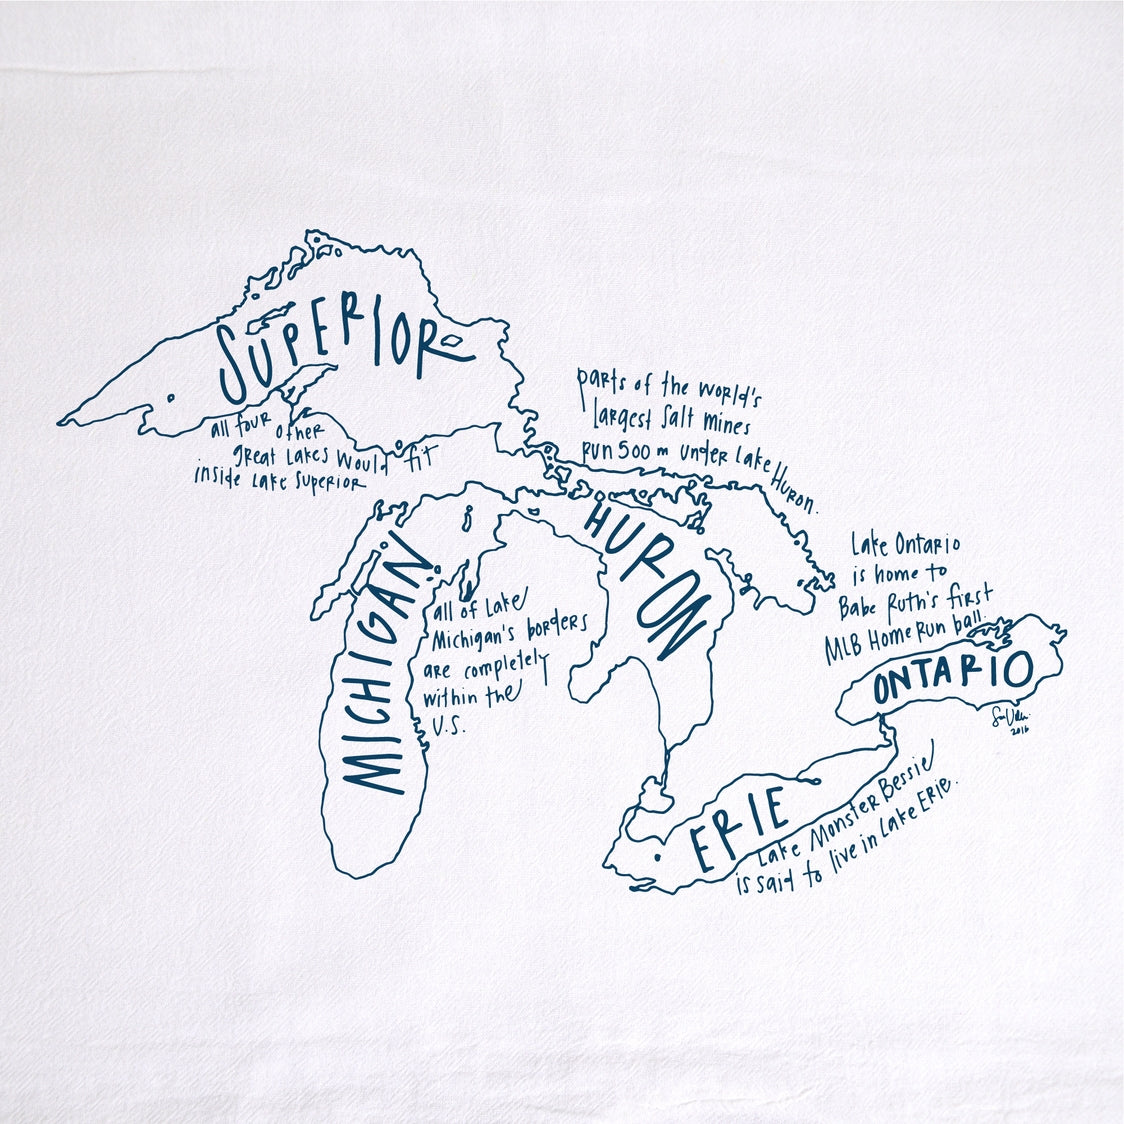 SUPERIOR
all four other
great Lakes would fit
inside Lake Superior
parts of the world's
largest Salt mines
run 500 m under Lake Huron.
HURON
MICHIGAN
all of Lake
Michigan's borders
are completely
within the
U.S.
Lake Ontario
is home to
Babe Ruth's first
MLB Home Run ball.
ONTARIO
2016
ERIE
Lake Monster Bessie
is said to live in Lake Erie.